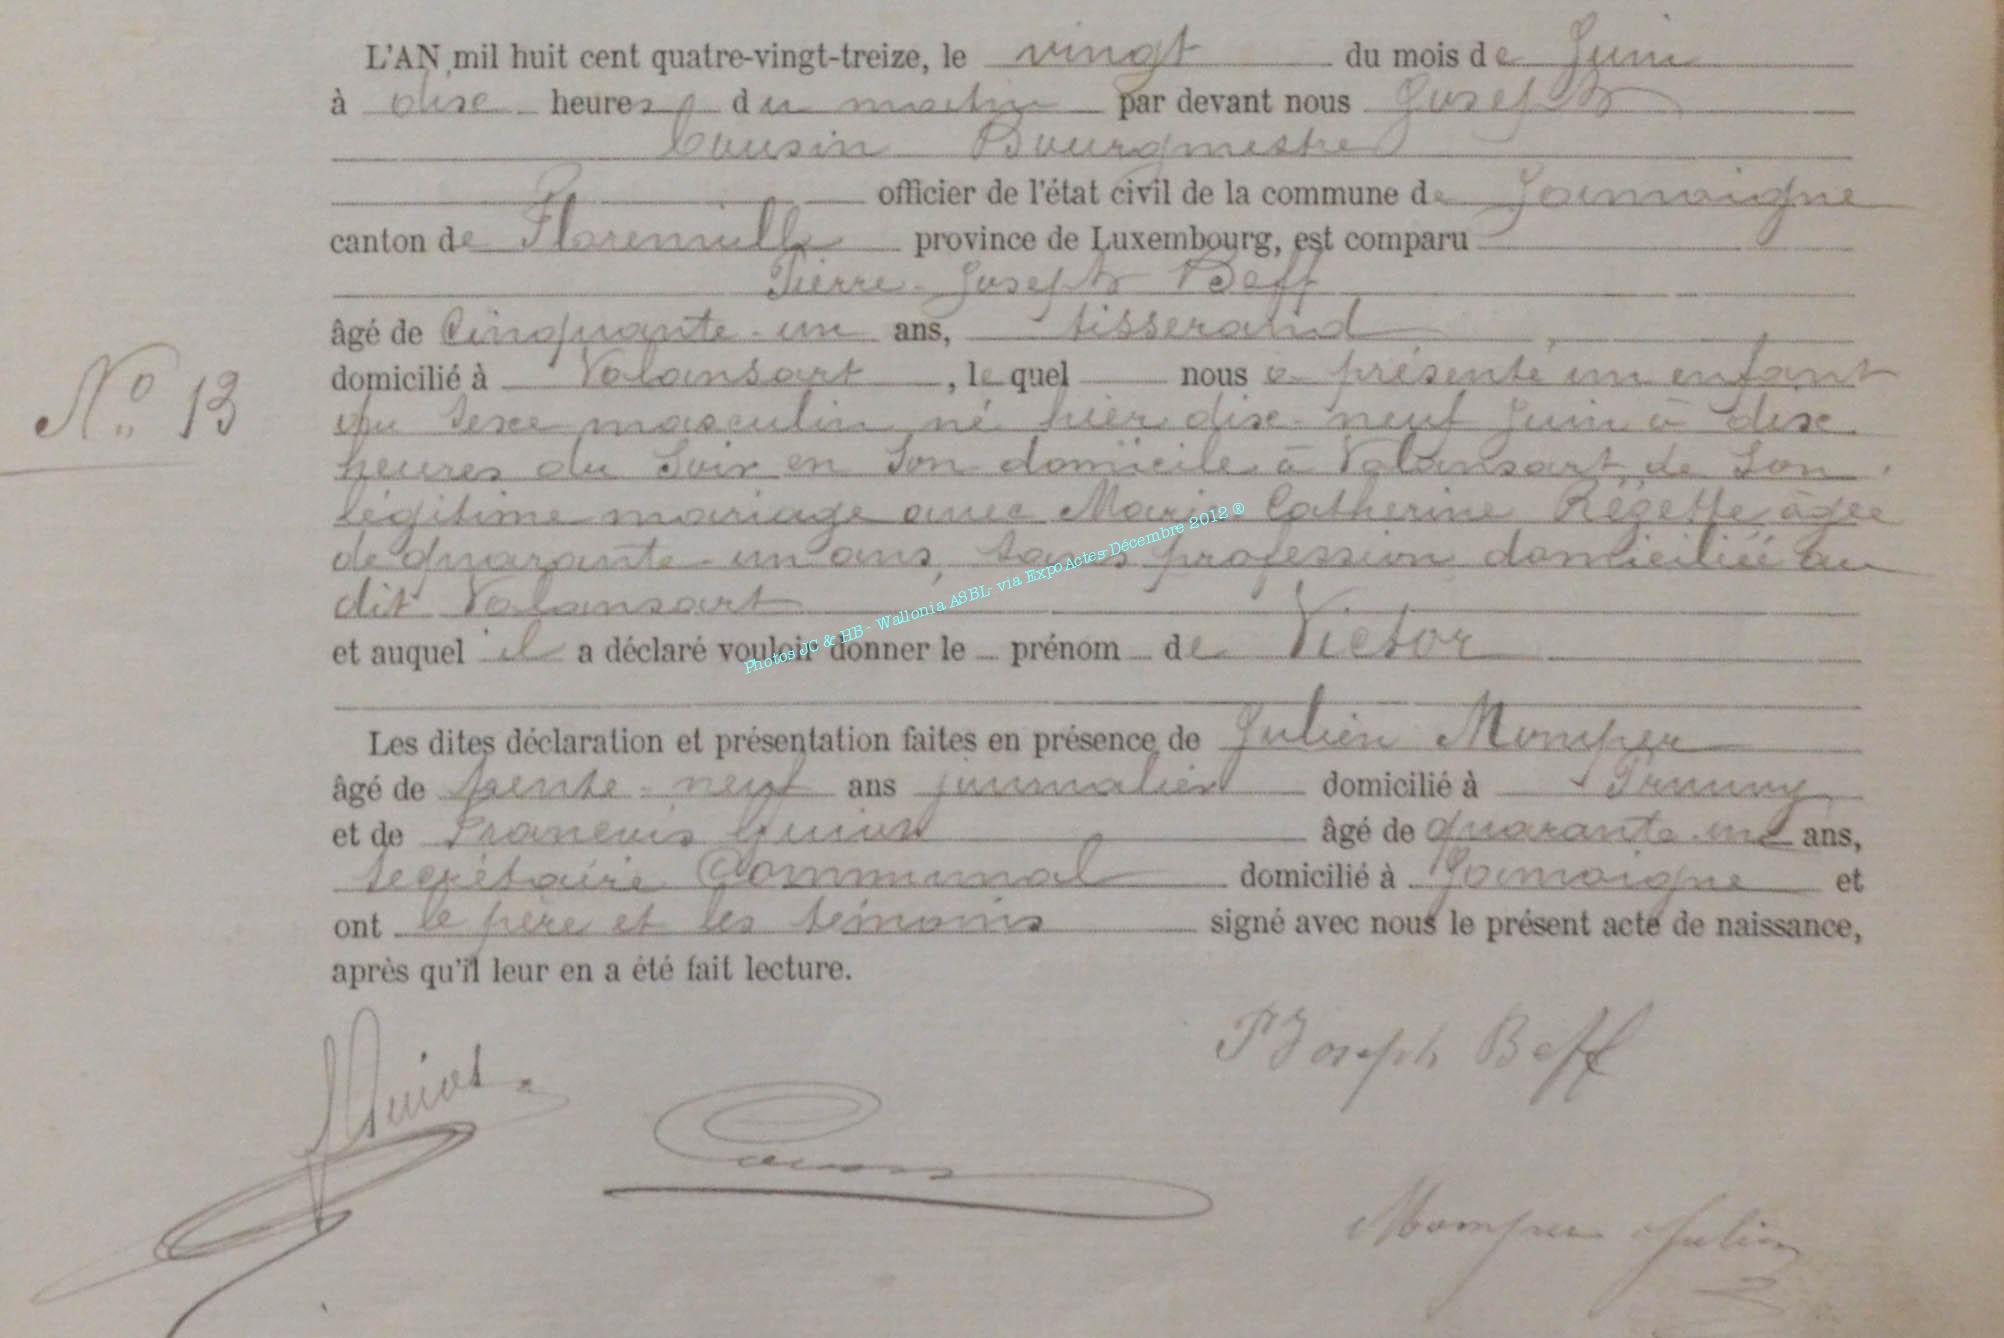 L'AN mil huit cent quatre-vingt-treize, le vingt du mois de Juin
à dix heures du matin par devant nous Joseph
Cousin Bourgmestre
officier de l'état civil de la commune de Jamoigne
canton de Florenville province de Luxembourg, est comparu
Pierre-Joseph Beff
âgé de Cinquante-un ans, tisserand
N° 13
domicilié à Valansart, lequel nous a présenté un enfant
du sexe masculin né hier dix-neuf Juin à dix
heures du soir en son domicile à Valansart de son
légitime mariage avec Marie Catherine Régette âgée
de quarante-un ans, sans profession domiciliée au
dit Valansart
et auquel il a déclaré vouloir donner le prénom de Victor
Photos JC & HB - Wallonia ASBL- via ExpoActes-Décembre 2012 ®
Les dites déclaration et présentation faites en présence de Julien Momper
âgé de trente-neuf ans journalier domicilié à Prouvy
et de Francois Guiot âgé de quarante-un ans,
secrétaire Communal domicilié à Jamoigne et
ont le père et les témoins signé avec nous le présent acte de naissance,
après qu'il leur en a été fait lecture.
PJoseph Beff
Guiot
Cousin
Momper Julien